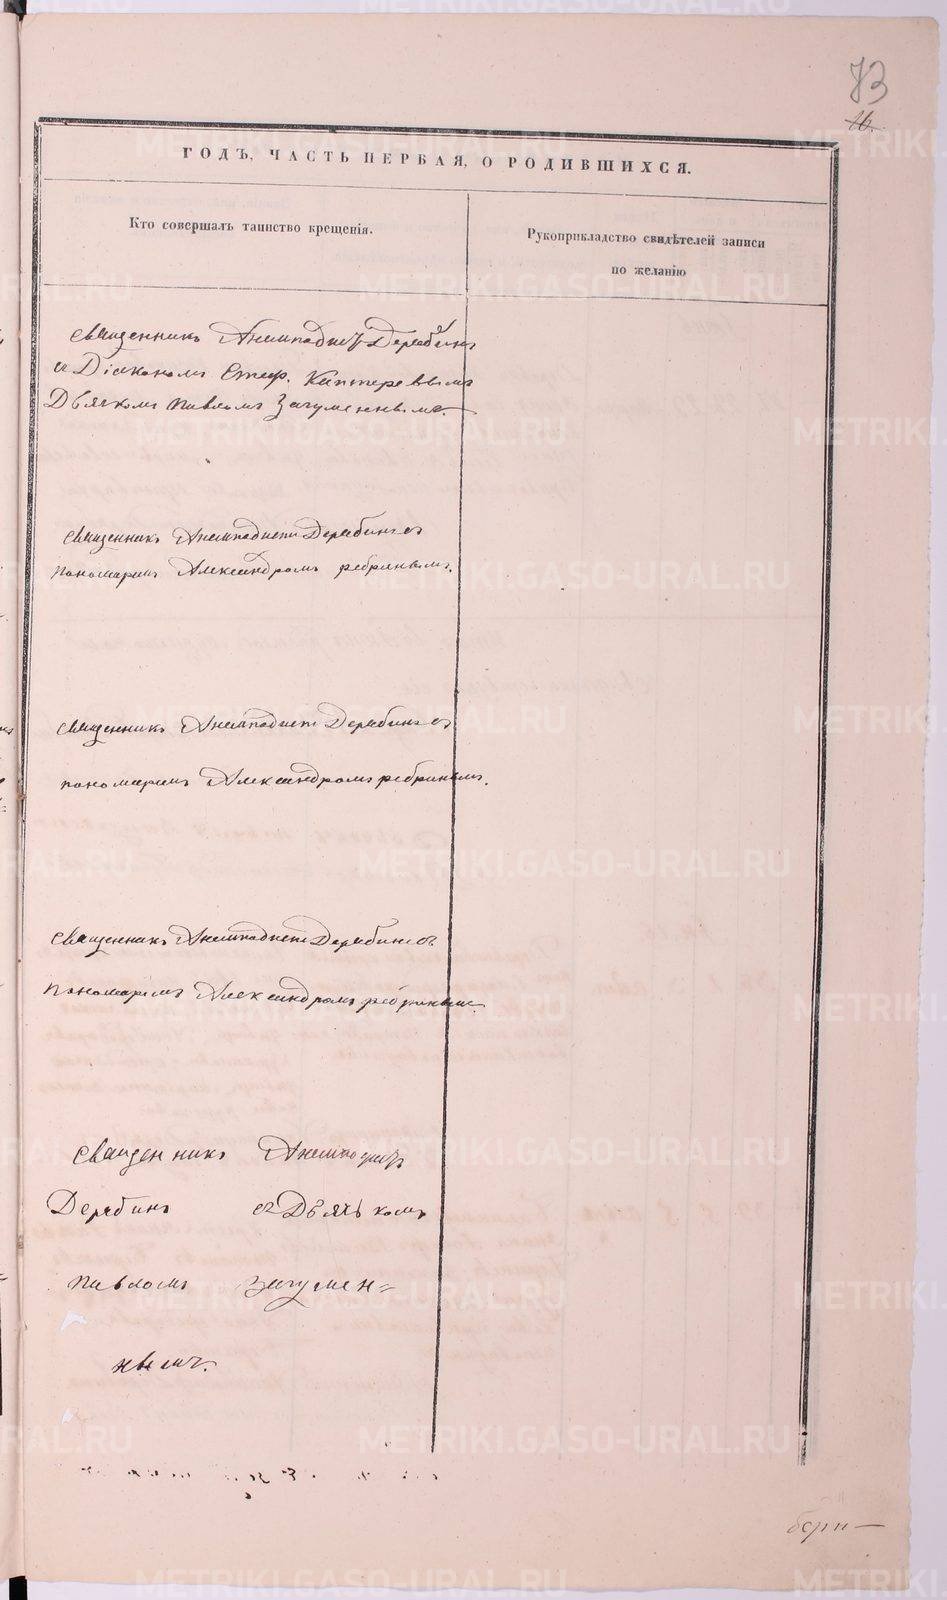 73
16.
ГОДЪ, ЧАСТЬ ПЕРВАЯ, О РОДИВШИХСЯ.
Кто совершалъ таинство крещенія.
Рукоприкладство свидѣтелей записи
по желанію
Священникъ Анемподистъ Дерябинъ
съ Діакономъ Стеф. Каптеревымъ
Дьячкомъ Павломъ Загуменнымъ.
Священникъ Анемподистъ Дерябинъ съ
пономаремъ Александромъ Ребринымъ.
Священникъ Анемподистъ Дерябинъ съ
пономаремъ Александромъ Ребринымъ.
Священникъ Анемподистъ Дерябинъ съ
пономаремъ Александромъ Ребринымъ.
Священникъ Анемподистъ
Дерябинъ съ Дьячькомъ
Павломъ Загумен=
нымъ.
METRIKI.GASO-URAL.RU